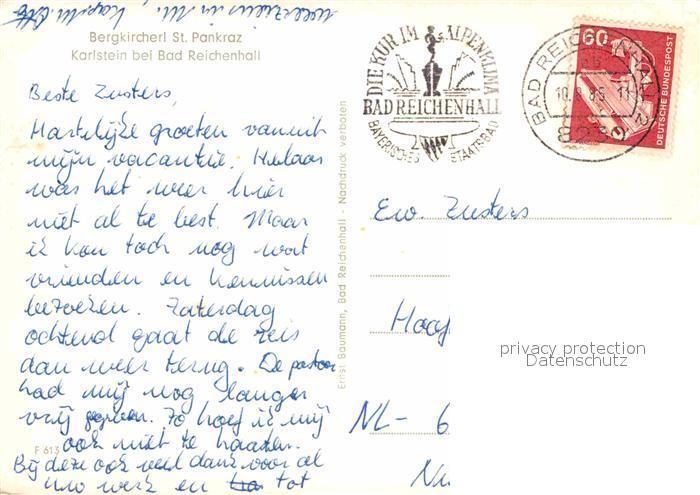 weerziens in M.
Bergkircherl St. Pankraz
Karlstein bei Bad Reichenhall
Beste Zusters,
Hartelijke groeten vanuit
mijn vacantie. Helaas
was het weer hier
niet al te best. Maar
ik kon toch nog wat
vrienden en kennissen
bezoeken. Zaterdag
ochtend gaat de reis
dan weer terug. De pastoor
had mij nog langer
vrij gegeven. Zo hoef ik mij
ook niet te haasten.
Bij deze ook veel dank voor al
uw werk en tot
F 613
Ernst Baumann, Bad Reichenhall - Nachdruck verboten
DIE KUR IM ALPENKLIMA
BAD REICHENHALL
BAYERISCHES STAATSBAD
BAD REICHENHALL
8230
60
DEUTSCHE BUNDESPOST
Ew. Zusters
Hoof
privacy protection
Datenschutz
NL- 6